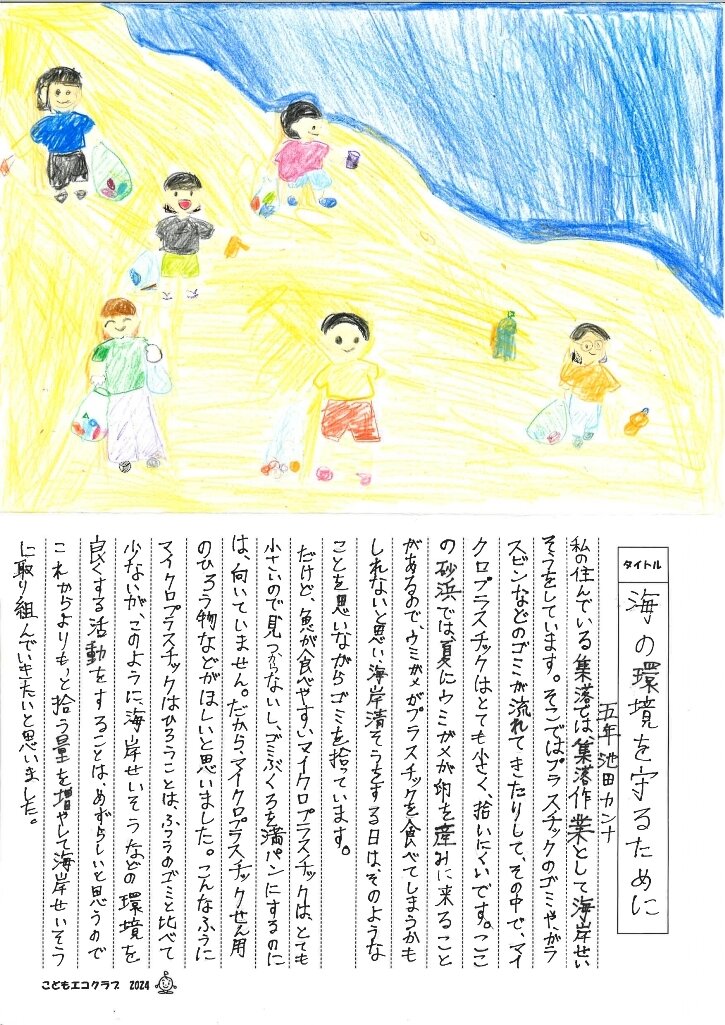 タイトル
海の環境を守るために
五年 池田カンナ
私の住んでいる集落では、集落作業として海岸せい
そうをしています。そこではプラスチックのゴミや、ガラ
スビンなどのゴミが流れてきたりして、その中で、マイ
クロプラスチックはとても小さく、拾いにくいです。ここ
の砂浜では、夏にウミガメが卵を産みに来ること
があるので、ウミガメがプラスチックを食べてしまうかも
しれないと思い、海岸清そうをする日は、そのような
ことを思いながらゴミを拾っています。
だけど、魚が食べやすいマイクロプラスチックは、とても
小さいので見つからないし、ゴミぶくろを満パンにするのに
は、向いていません。だから、マイクロプラスチックせん用
のひろう物などがほしいと思いました。こんなふうに
マイクロプラスチックはひろうことは、ふつうのゴミと比べて
少ないが、このように、海岸せいそうなどの環境を
良くする活動をすることは、めずらしいと思うので
これからよりもっと拾う量を増やして海岸せいそう
に取り組んでいきたいと思いました。
こどもエコクラブ 2024